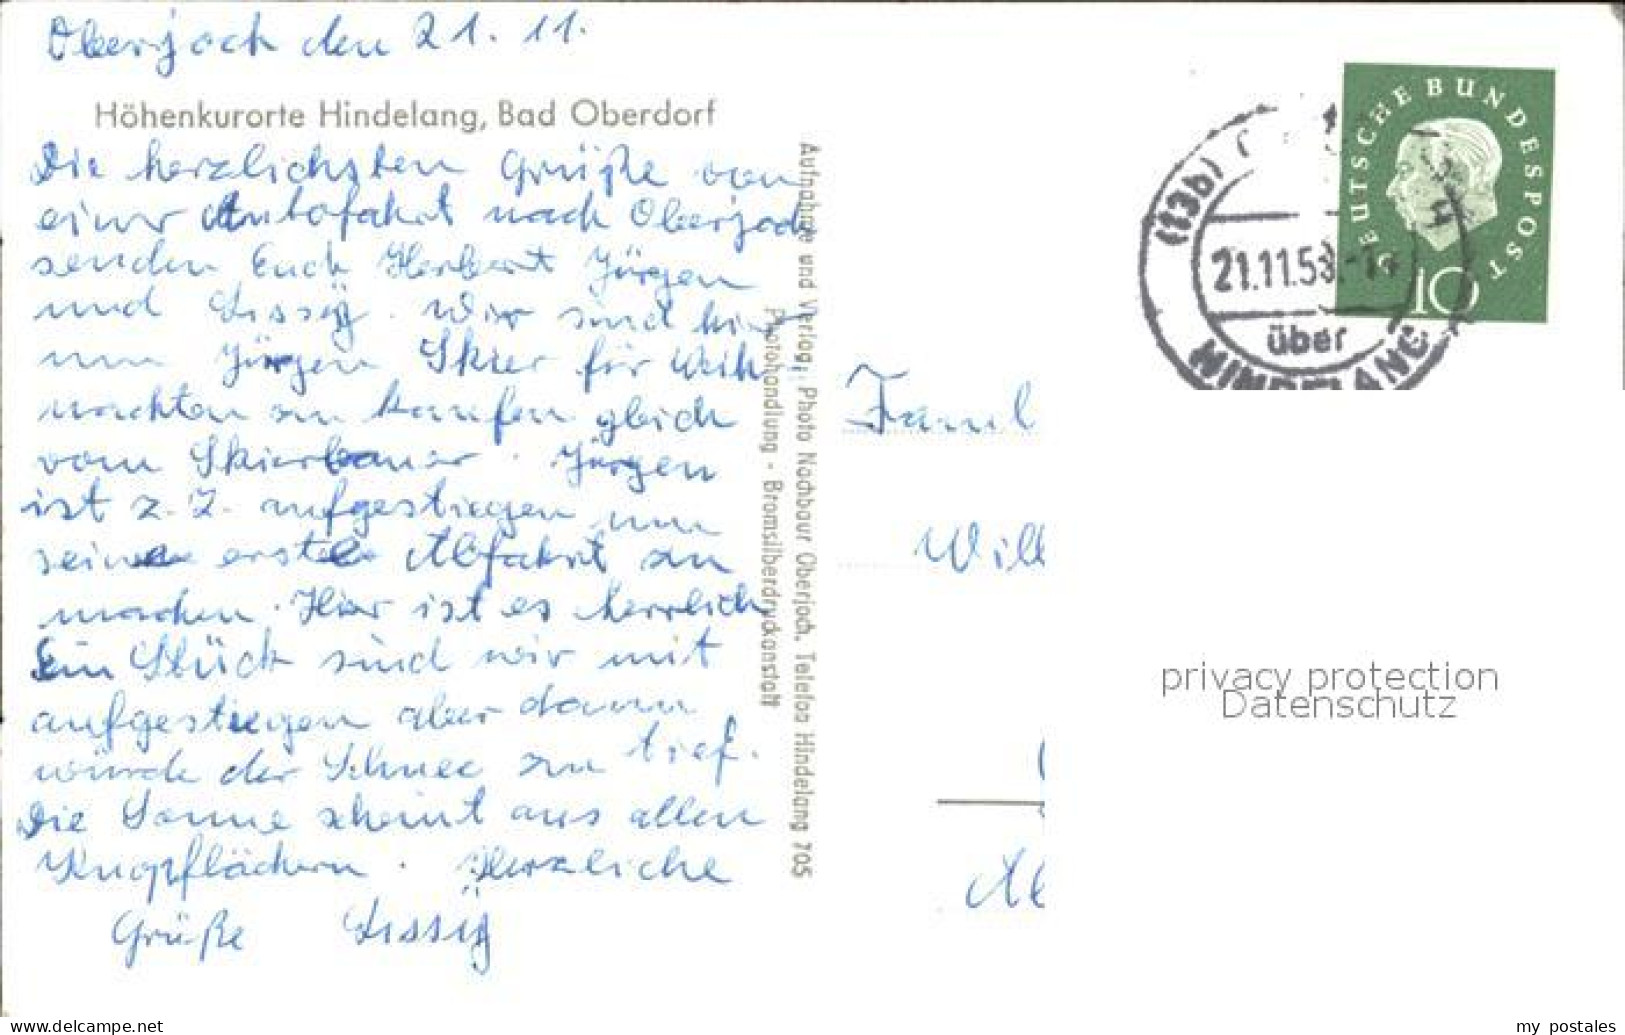 Oberjoch den 21. 11.
Höhenkurorte Hindelang, Bad Oberdorf
Die herzlichsten Grüße von
einer Autofahrt nach Oberjoch
senden Euch Herbert Jürgen
und Sissÿ. Wir sind hier
um Jürgen Skier für Weih
nachten zu kaufen gleich
vom Skierbauer. Jürgen
ist z. Z. aufgestiegen um
seine erste Abfahrt zu
machen. Hier ist es herrlich
Ein Stück sind wir mit
aufgestiegen aber dann
wurde der Schnee zu tief.
Die Sonne scheint aus allen
Knopflöchern. Herzliche
Grüße Sissÿ
Aufnahme und Verlag: Photo Nachbaur Oberjoch. Telefon Hindelang 705
Photohandlung - Bromsilberdruckanstalt
DEUTSCHE BUNDESPOST
10
(13b)
21.11.59
über
HINDELANG
Famil
Will
privacy protection
Datenschutz
www.delcampe.net
my postales